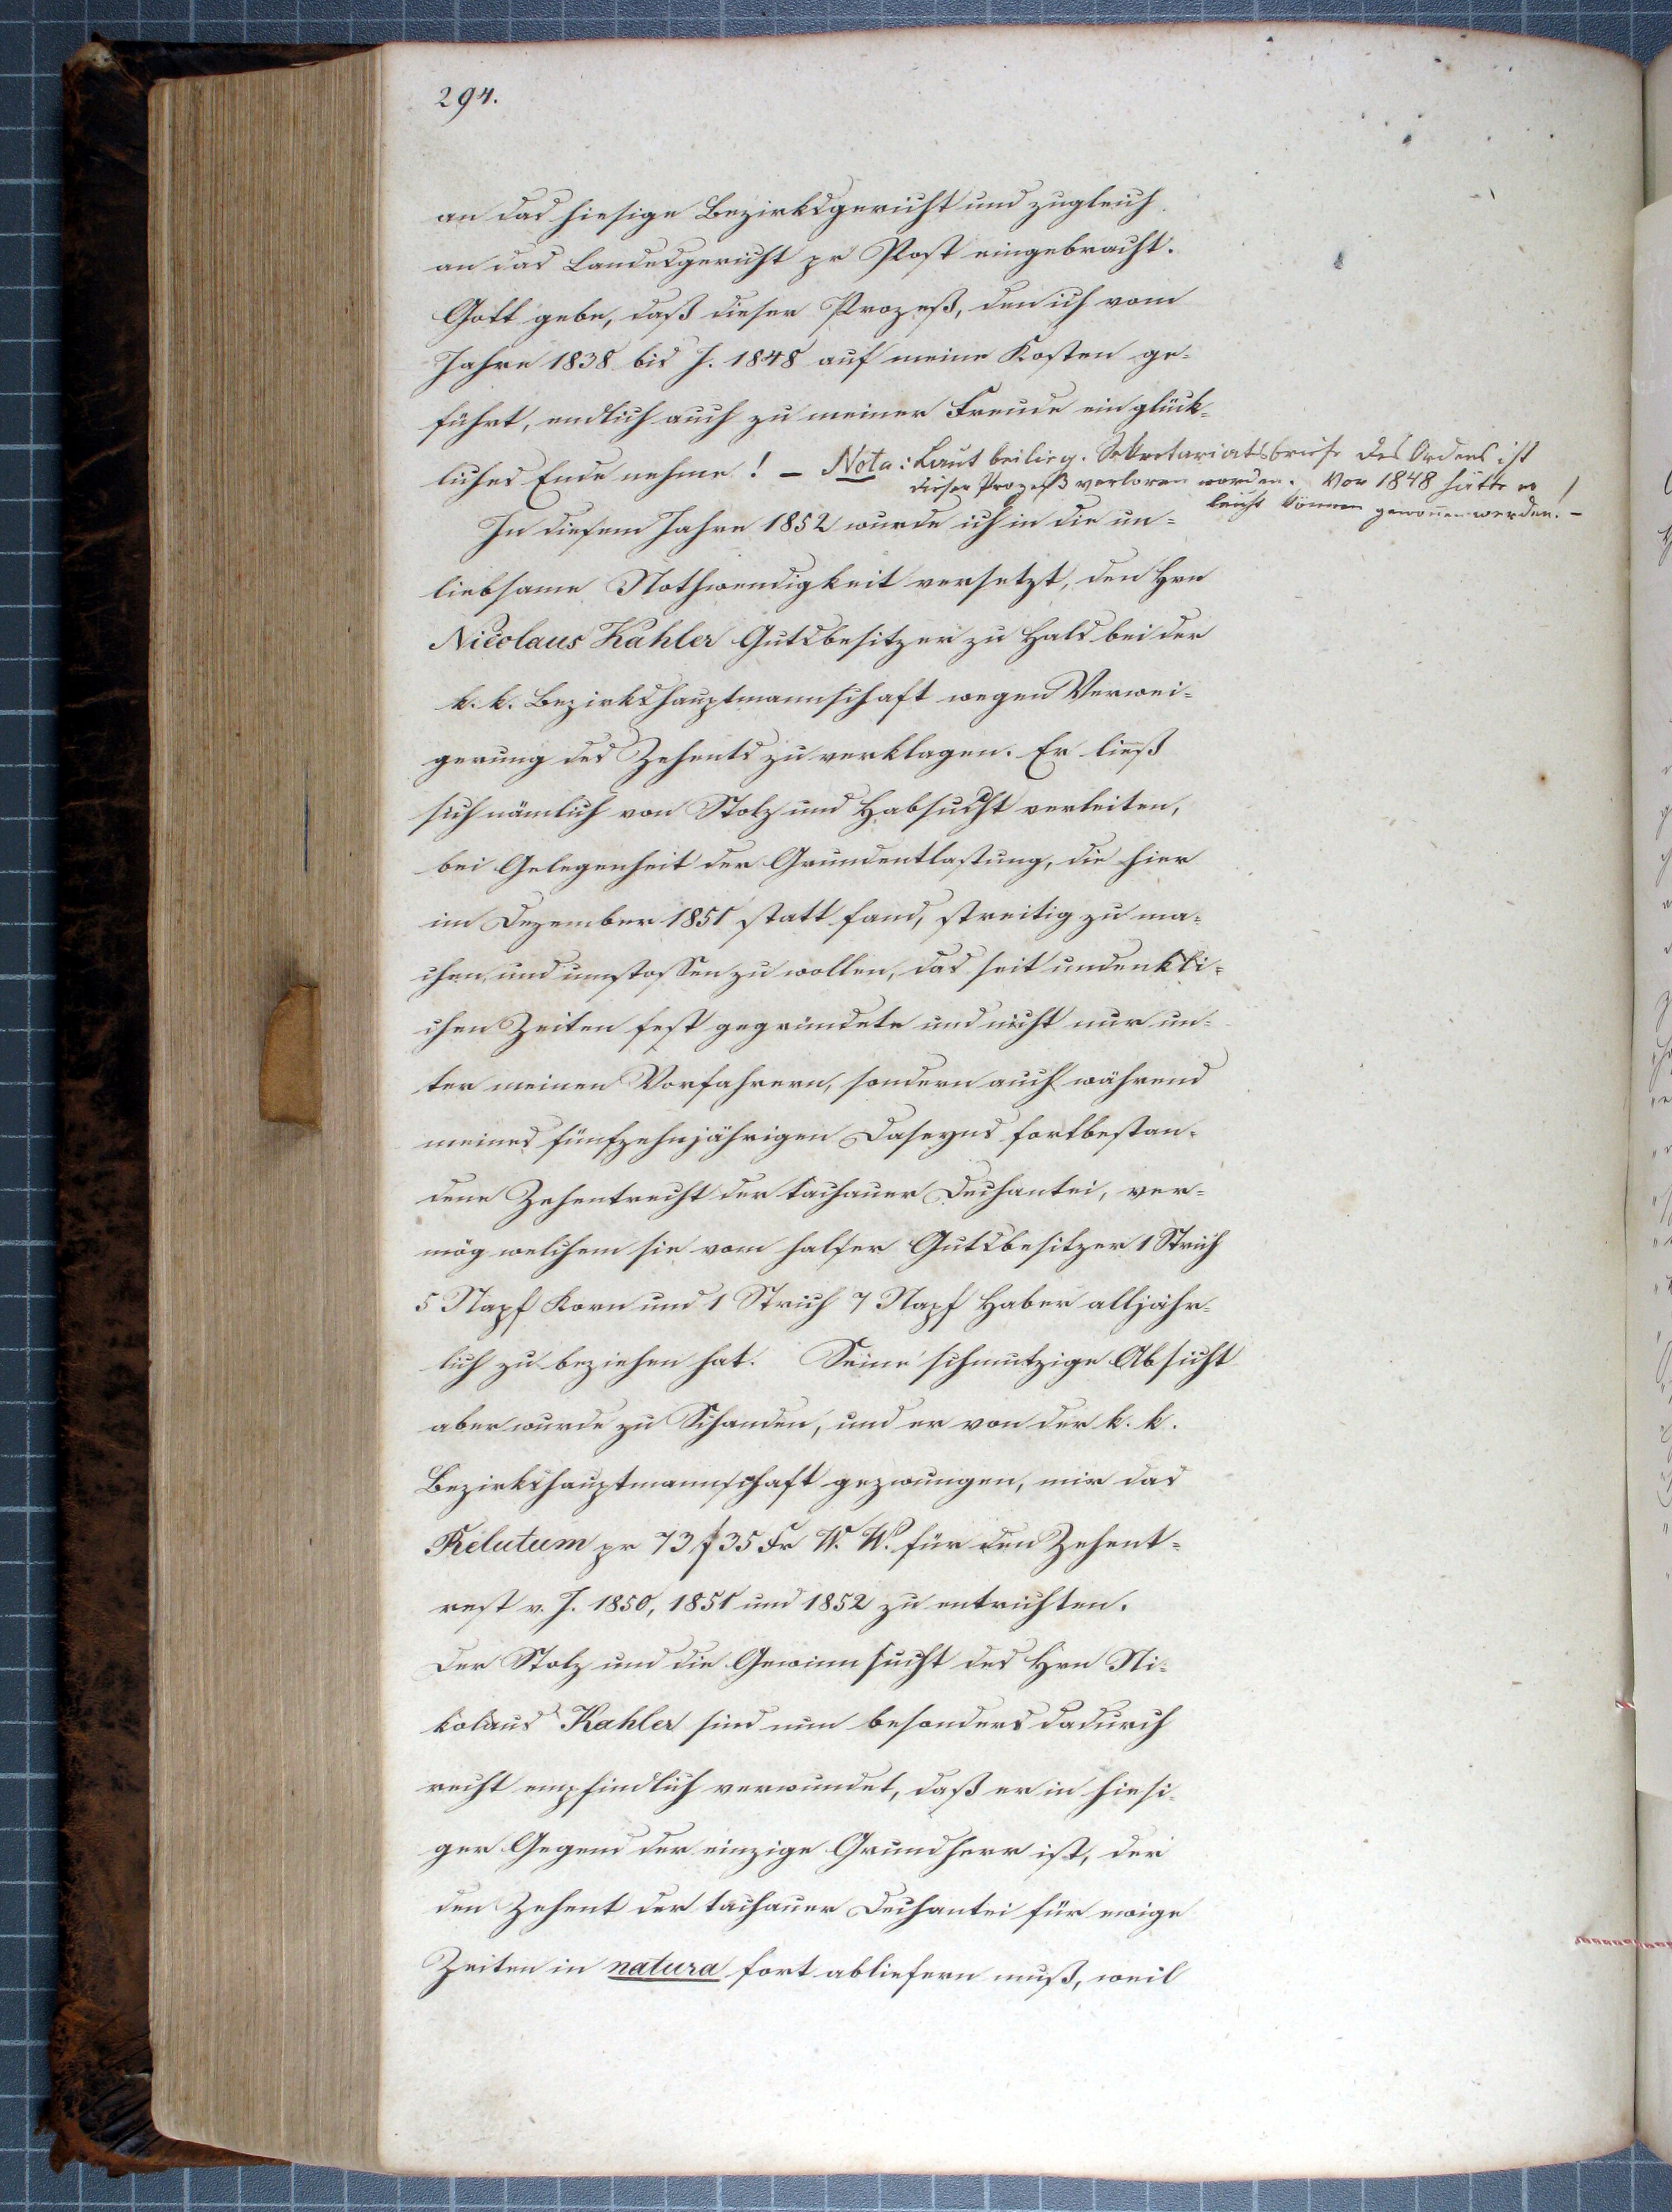 294.
an das hiesige Bezirksgericht und zugleich
an das Landesgericht pr Post eingebracht.
Gott gebe, daß dieser Prozeß, den ich vom
Jahre 1838 bis J. 1848 auf meine Kosten ge-
führt, endlich auch zu meiner Freude ein glük-
liches Ende nehme! – Nota: Laut beilieg. Sekretariatsbriefe des Ordens ist
dieser Prozeß verloren worden. Vor 1848 hätte er
leicht können gewonnen werden! –
In diesem Jahre 1852 wurde ich in die un-
liebsame Nothwendigkeit versetzt, den Hrn
Nicolaus Kahler Gutsbesitzer zu Hals bei der
k. k. Bezirkshauptmannschaft wegen Verwei-
gerung des Zehents zu verklagen. Er ließ
sich nämlich von Stolz und Habsucht verleiten,
bei Gelegenheit der Grundentlastung, die hier
im Dezember 1851 statt fand, streitig zu ma-
chen, und umstossen zu wollen, das seit undenkli-
chen Zeiten fest gegründete und nicht nur un-
ter meinen Vorfahrern, sondern auch während
meines fünfzehnjährigen Daseyns fortbestan-
dene Zehentrecht der tachauer Dechantei, ver-
mög welchem sie vom halser Gutsbesitzer 1 Strich
5 Napf Korn und 1 Strich 7 Napf Haber alljähr-
lich zu beziehen hat. Seine schmutzige Absicht
aber wurde zu Schanden, und er von der k. k.
Bezirkshauptmannschaft gezwungen, mir das
Relutum pr 73 f 35 Xr W. W. für den Zehent-
rest v. J. 1850, 1851 und 1852 zu entrichten.
Der Stolz und die Gewinnsucht des Hrn Ni-
kolaus Kahler sind nun besonders dadurch
recht empfindlich verwundet, daß er in hiesi-
ger Gegend der einzige Grundherr ist, der
den Zehent der tachauer Dechantei für ewige
Zeiten in natura fort abliefern muß, weil